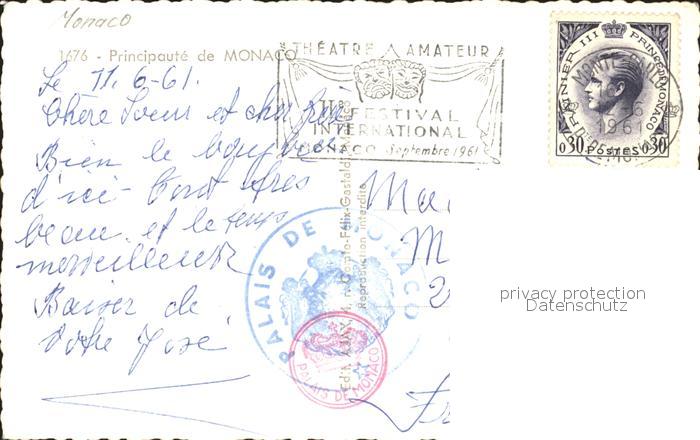 Monaco
1676 - Principauté de MONACO
Le 11.6-61.
Chère Soeur et cher frère
Bien le bonjour
d'ici. Tout très
beau et le temps
merveilleux
Baiser de
votre José
THÉATRE AMATEUR
FESTIVAL
INTERNATIONAL
MONACO Septembre 1961
RAINIER III PRINCE DE MONACO
MONTE-CARLO
1961
0,30 POSTES 0,30
Reproduction interdite
PALAIS DE MONACO
PALAIS DE MONACO
M
Fr
privacy protection
Datenschutz